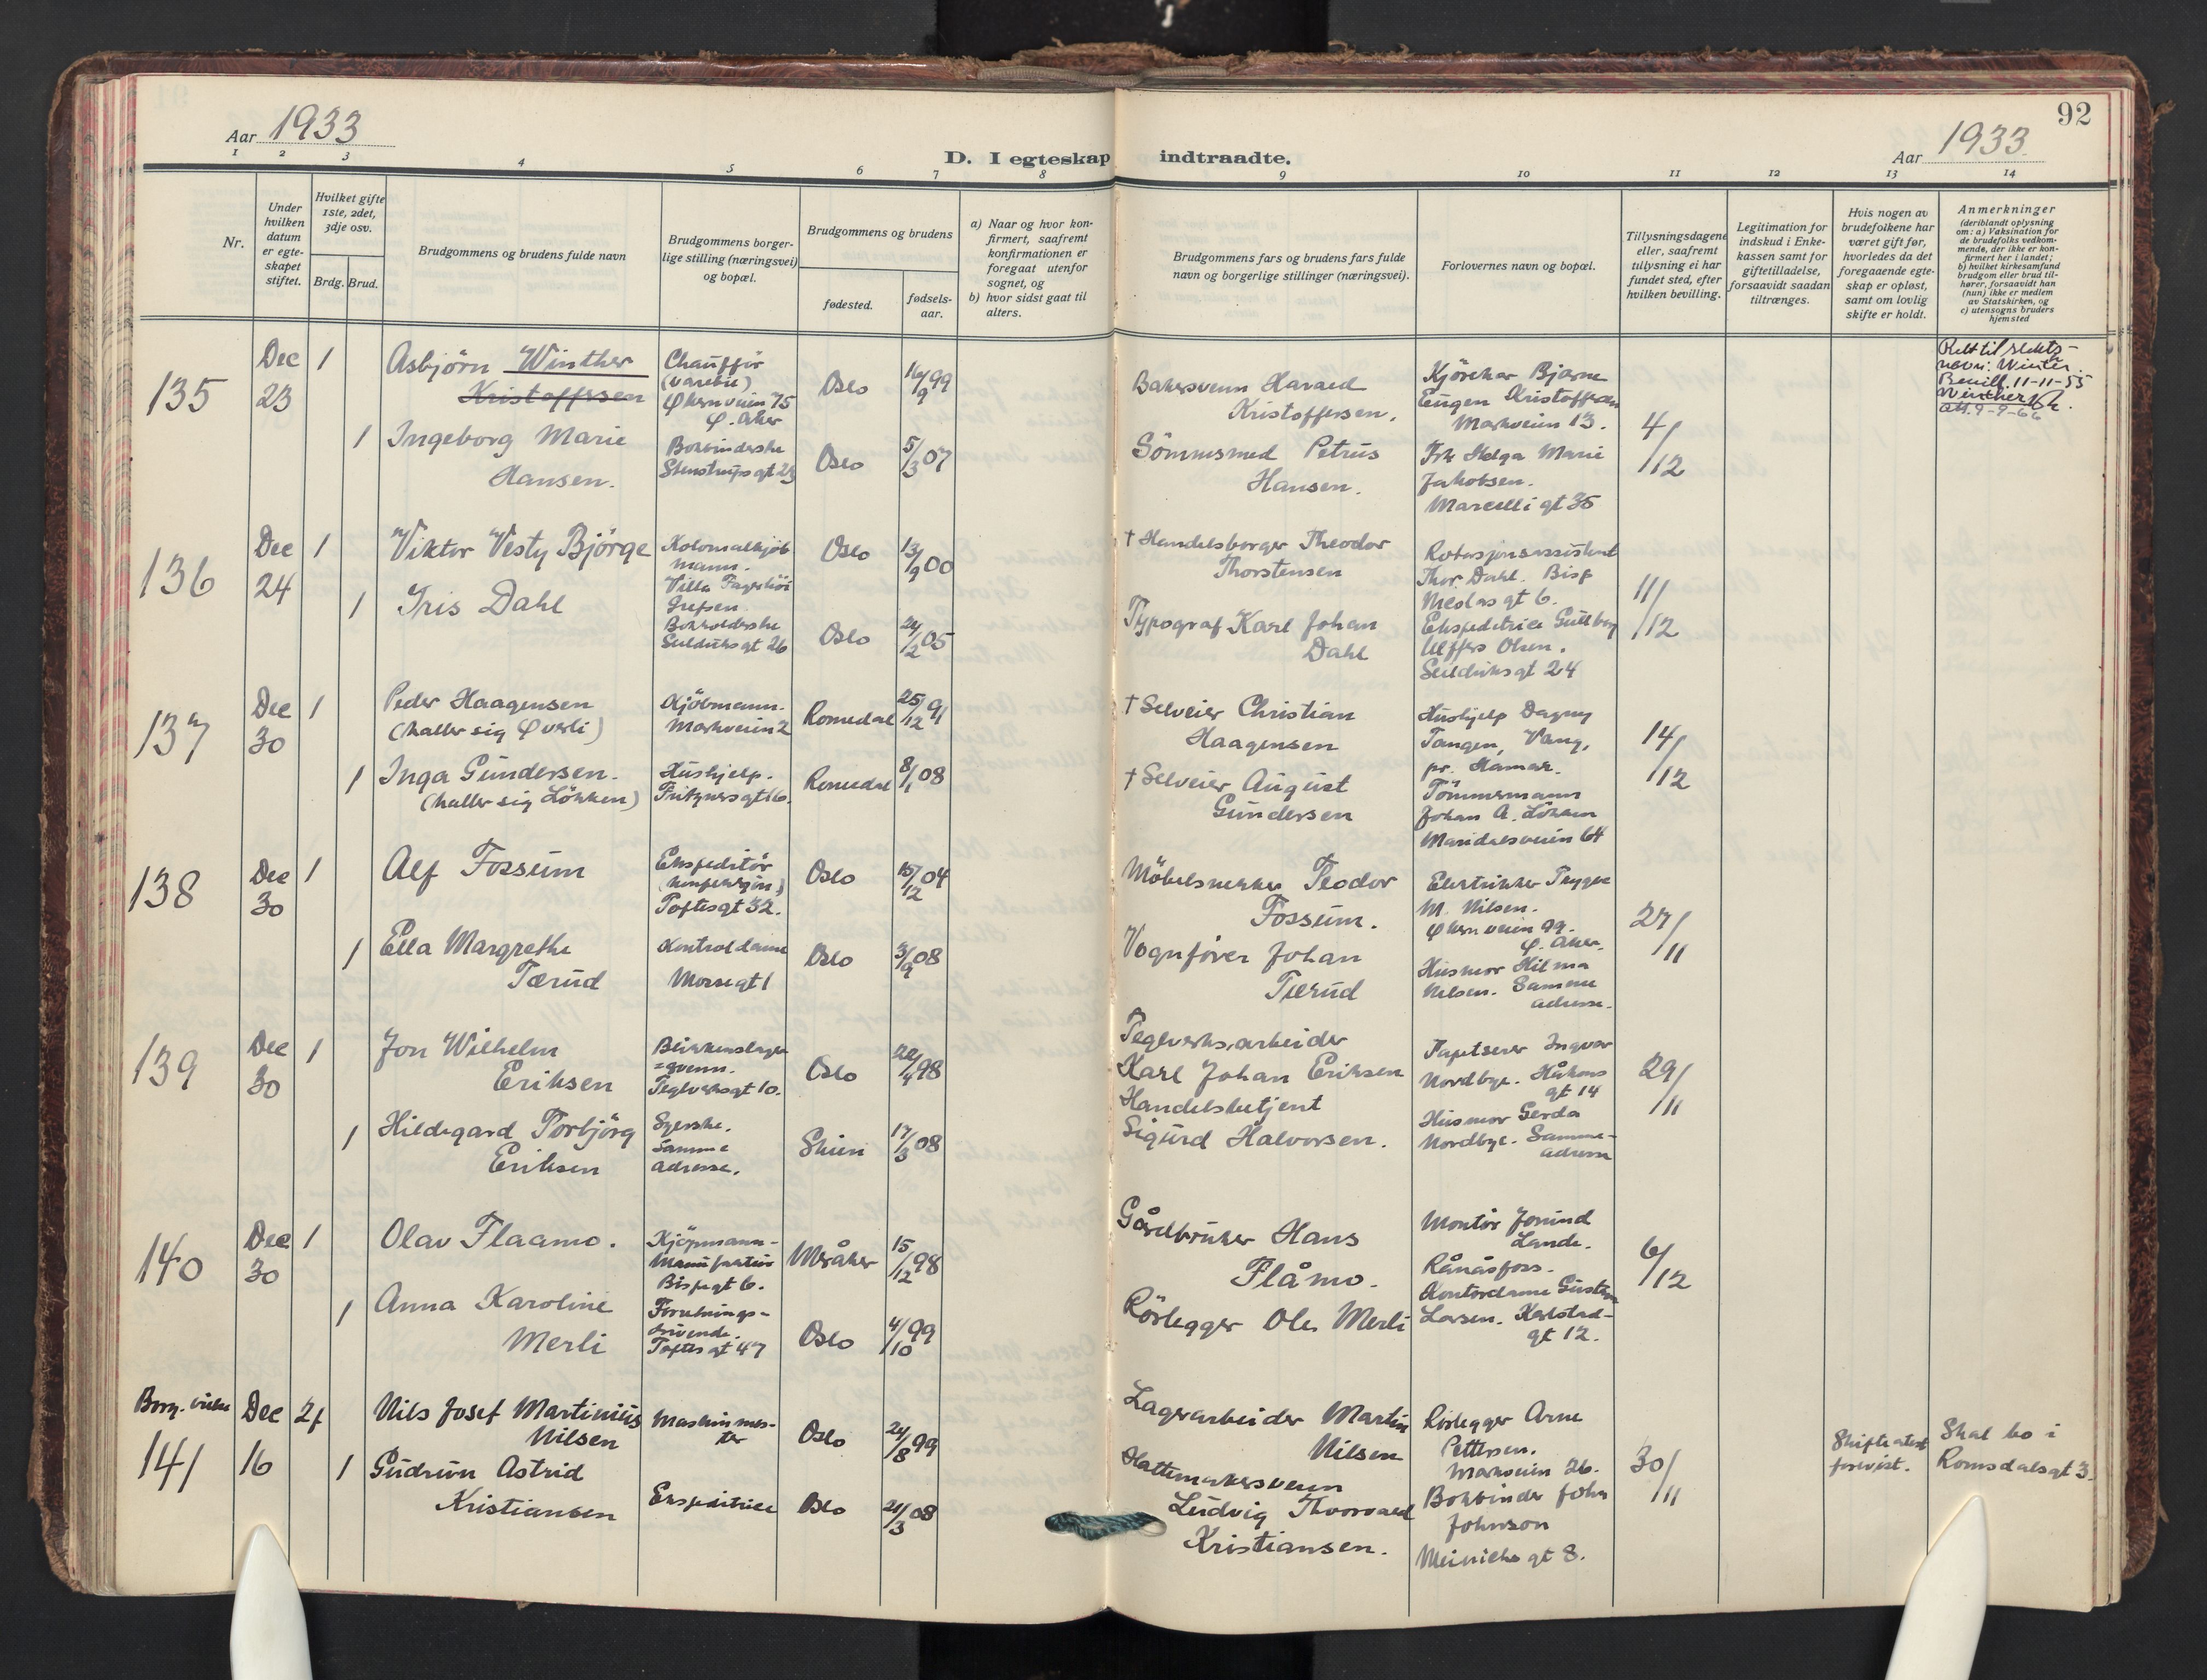 92
Aar 1933
Aar 1933
D. I egteskap indtraadte.
1 2 3 4 5 6 7 8 9 10 11 12 13 14
Nr.
Under
hvilken
datum
er egte-
skapet
stiftet.
Hvilket gifte
1ste, 2det,
3dje osv.
Brdg. Brud.
Brudgommens og brudens fulde navn
Brudgommens borger-
lige stilling (næringsvei)
og bopæl.
Brudgommens og brudens
fødested.
fødsels-
aar.
a) Naar og hvor kon-
firmert, saafremt
konfirmationen er
foregaat utenfor
sognet, og
b) hvor sidst gaat til
alters.
Brudgommens fars og brudens fars fulde
navn og borgerlige stillinger (næringsvei).
Forlovernes navn og bopæl.
Tillysningsdagene
eller, saafremt
tillysning ei har
fundet sted, efter
hvilken bevilling.
Legitimation for
indskud i Enke-
kassen samt for
giftetilladelse,
forsaavidt saadan
tiltrænges.
Hvis nogen av
brudefolkene har
været gift før,
hvorledes da det
foregaaende egte-
skap er opløst,
samt om lovlig
skifte er holdt.
Anmerkninger
(deriblandt oplysning
om: a) Vaksination for
de brudefolks vedkom-
mende, der ikke er kon-
firmert her i landet;
b) hvilket kirkesamfund
brudgom eller brud til-
hører, forsaavidt han
(hun) ikke er medlem
av Statskirken, og
c) utensogns bruders
hjemsted
135
Dec
23
1
Asbjörn Winther
Kristoffersen
Chaufför
(varebil)
Økernveien 75
Ø. Aker
Oslo
16/9 99
Bakersvenn Harald
Kristoffersen.
Kjörekar Bjarne
Eugen Kristoffersen
Markveien 13.
4/12
Rett til slekts-
navn: Winter.
Bevill. 11-11-55
Winther
att. 9-9-66
1
Ingeborg Marie
Hansen.
Bokbinderske
Stenstrups gt 23
Oslo
5/3 07
Sömmsmed Petrus
Hansen.
Frk Helga Marie
Jakobsen.
Marselli gt 35
136
Dec
24
1
Viktor Vesty Björge
Kolonialkjöb
mann.
Grefsen.
Oslo
13/9 00
† Handelsborger Theodor
Thorstensen
Rotasjonsassistent
Thor Dahl. Bisp
gt 6.
11/12
1
Iris Dahl
Bokholderske
Seilduks gt 26
Oslo
24/2 05
Typograf Karl Johan
Dahl
Ekspeditrice Gullborg
Olsen.
Seilduks gt 24
137
Dec
30
1
Peder Haagensen
(kaller sig Øverli)
Kjöbmann.
Markveien 2
Romedal
25/12 91
† Selveier Christian
Haagensen
Hushjelp Dagny
Tangen, Vang,
pr. Hamar.
14/12
1
Inga Gundersen.
(kaller sig Lökken)
Hushjelp.
Fritzners gt 16.
Romedal
8/1 08
† Selveier August
Gundersen
Tömmermann
Johan A. Löken
Maridalsveien 64
138
Dec
30
1
Alf Fossum
Ekspeditör
(konfeksjon)
Toftes gt 32.
Oslo
15/12 04
Möbelsnekker Teodor
Fossum.
Elektriker Trygve
M. Nilsen.
Økernveien 99.
Ø. Aker.
27/11
1
Ella Margrethe
Tærud
Kontroldame
Mosse gt 1
Oslo
3/9 08
Vognförer Johan
Tærud
Husmor Hilma
Nilsen. Samme
adresse.
139
Dec
30
1
Jon Wilhelm
Eriksen
Blikkenslager
=svenn.
Teglverksgt 10.
Oslo
22/4 98
Teglverksarbeider
Karl Johan Eriksen
Tapetserer Ingvar
Nordbye. Håkons
gt 14
29/11
1
Hildegard Torbjörg
Eriksen
Syerske.
Samme
adresse.
Skien
17/3 08
Handelsbetjent
Sigurd Halvorsen.
Husmor Gerda
Nordbye. Samme
adresse
140
Dec.
30
1
Olav Flaamo.
Kjöpmann-
Manufaktur
Bispegt 6.
Meråker
15/12 98
Gårdbruker Hans
Flåmo.
Montör Jorund
Lande.
Rånåsfoss.
6/12
1
Anna Karoline
Merli
Forretnings-
drivende.
Toftes gt 47
Oslo
4/10 99
Rörlegger Ole Merli
Kontordame Gustava
Larsen. Karlstad-
gt 12.
Borg. vielse
141
Dec
16
2f
Nils Josef Martinius
Nilsen
Maskinmes-
ter
Oslo
24/8 99
Lagerarbeider Martin
Nilsen
Rörlegger Arne
Pettersen.
Markveien 26.
30/11
Skifteatest
forevist.
Skal bo i
Romsdalsgt 3.
1
Gudrun Astrid
Kristiansen
Ekspeditrice
Oslo
21/3 08
Hattemakersvenn
Ludvig Thorvald
Kristiansen.
Bokbinder John
Johnson
gt 8.